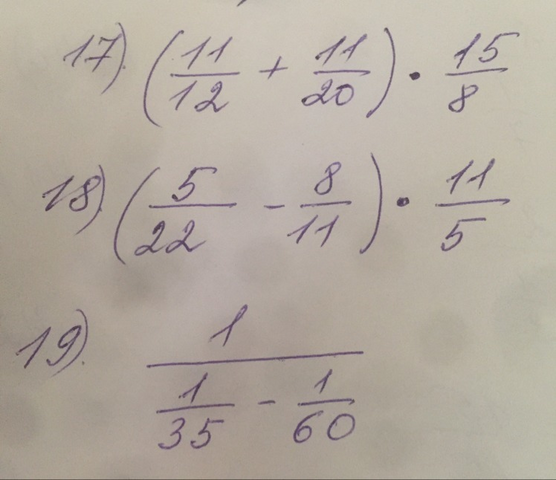 17). (11/12 + 11/20) · 15/8
18). (5/22 - 8/11) · 11/5
19). 1/(1/35 - 1/60)